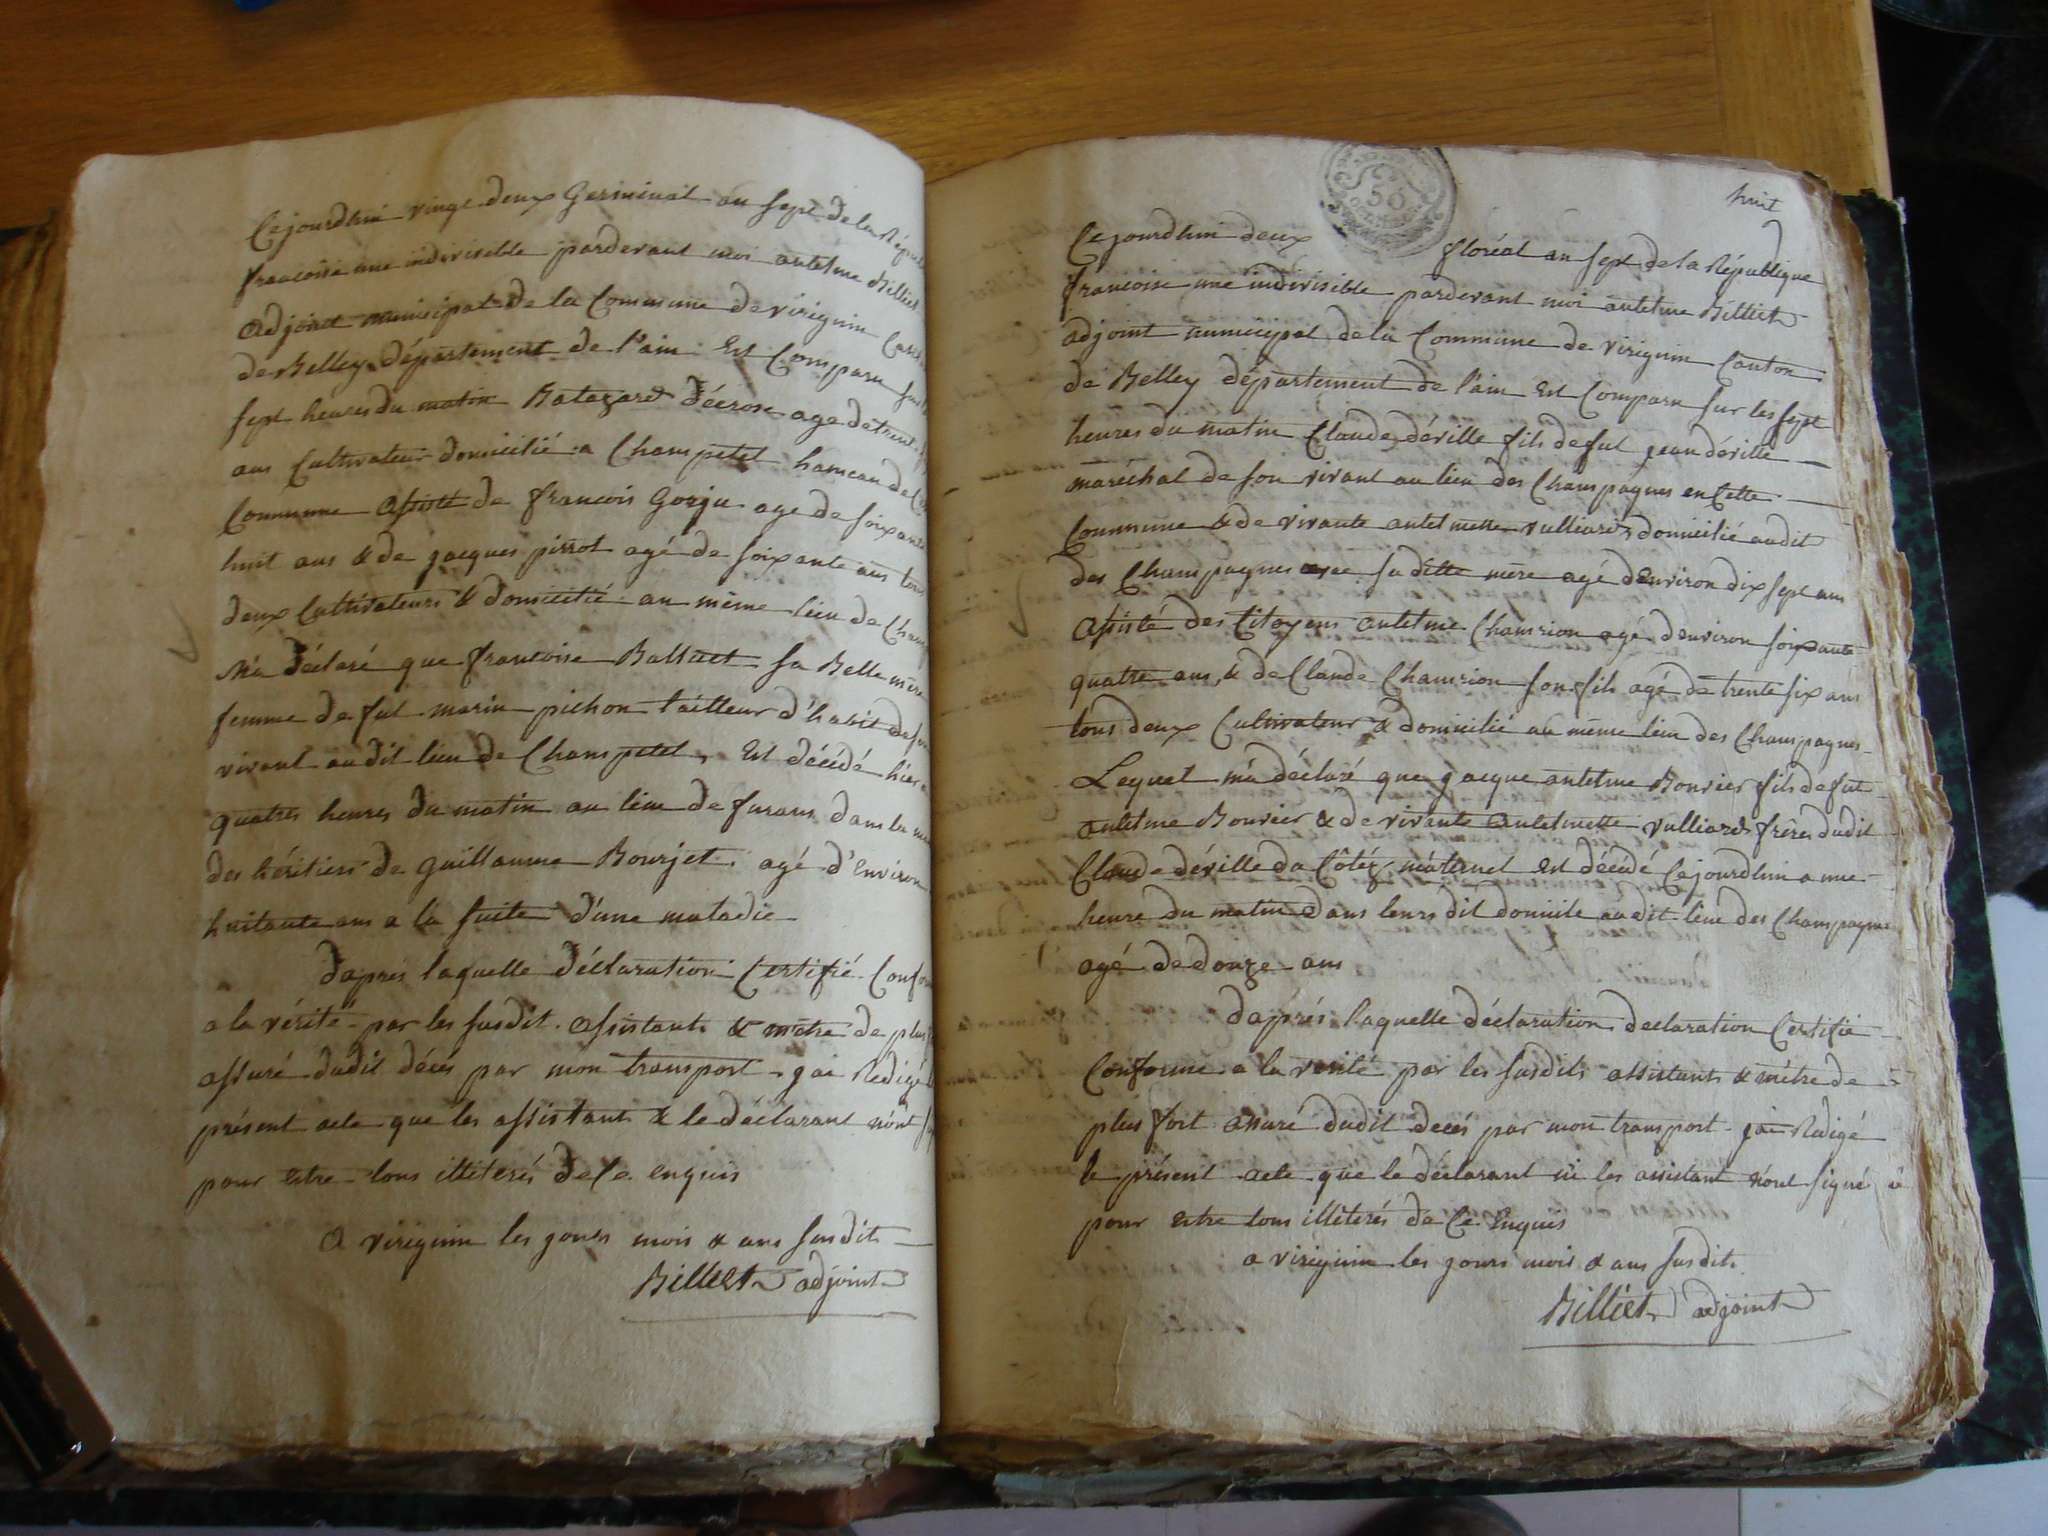 Cejourdhui vingt deux Germinal an sept de la
francoise une indivisible pardevant moi antelme Billiet
adjoint municipal de la Commune de virignin
de Belley département de l'ain Est Comparu
sept heures du matin Batazard décrose age de trente
ans Cultivateur domicilié a Champetel hameau de
Commune assisté de francois Gorju age de soixante
huit ans & de jacques pirrot agé de soixante ans tous
deux Cultivateurs & domicilié au même lieu de
M'a déclaré que francoise Balluet sa Belle mère
femme de fut marin pichon tailleur d'habit de
vivant audit lieu de Champetel, Est décédé hier
quatres heures du matin au lieu de furans dans la
des héritiers de guillaume Bourjet agé d'Environ
huitante ans a la suite d'une maladie
daprès laquelle déclaration Certifié
a la vérité par les susdit assistants & mètre de plus
assuré dudit décés par mon transport jai Rédigé
présent acte que les assistant & le déclarant n'ont
pour estre tous illiterés de ce enquis
a virignin les jours mois & ans susdit
Billiet adjoint
huit
56
Cejourdhui deux floréal an sept de la République
francoise une indivisible pardevant moi antelme Billiet
adjoint municipal de la Commune de virignin Canton
de Belley département de l'ain Est Comparu sur les sept
heures du matin Claude déville fils de fut jean déville
maréchal de son vivant au lieu des Champagnes en Cette
Commune & de vivante antelmette vulliard domicilié audit
des Champagnes avec sa ditte mère agé d'Environ dix sept ans
assisté des Citoyens antelme Chamrion agé d'environ soixante
quatre ans, & de Claude Chamrion son fils agé de trente six ans
tous deux Cultivateur & domicilié au même lieu des Champagnes
Lequel m'a déclaré que jacque antelme Bouvier fils de fut
antelme Bouvier & de vivante antelmette vulliard frères dudit
Claude déville du Côtéz maternel est décédé Cejourdhui a une
heure du matin dans leurs dit domicile audit lieu des Champagnes
agé de douze ans
daprés laquelle déclaration declaration Certifié
Conforme a la verité par les susdits assistants & mètre de
plus fort assuré dudit decés par mon transport jai Redigé
le présent acte que le déclarant ni les assistant n'ont signé
pour estre tous illiterés de Ce Enquis
a virignin les jours mois & ans susdit
Billiet adjoint